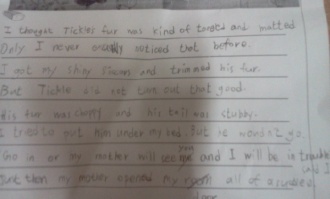 I thought Tickles fur was kind of tangld and matted
Only I never really noticed that before.
I got my shiny sissors and trimmed his fur.
But Tickle did not turn out that good.
His fur was choppy and his tail was stubby.
I tried to put him under my bed. But he woulsn't go.
Go in or my mother will see you and I will be in trouble
Just then my mother opened my room all of a sudden.
door